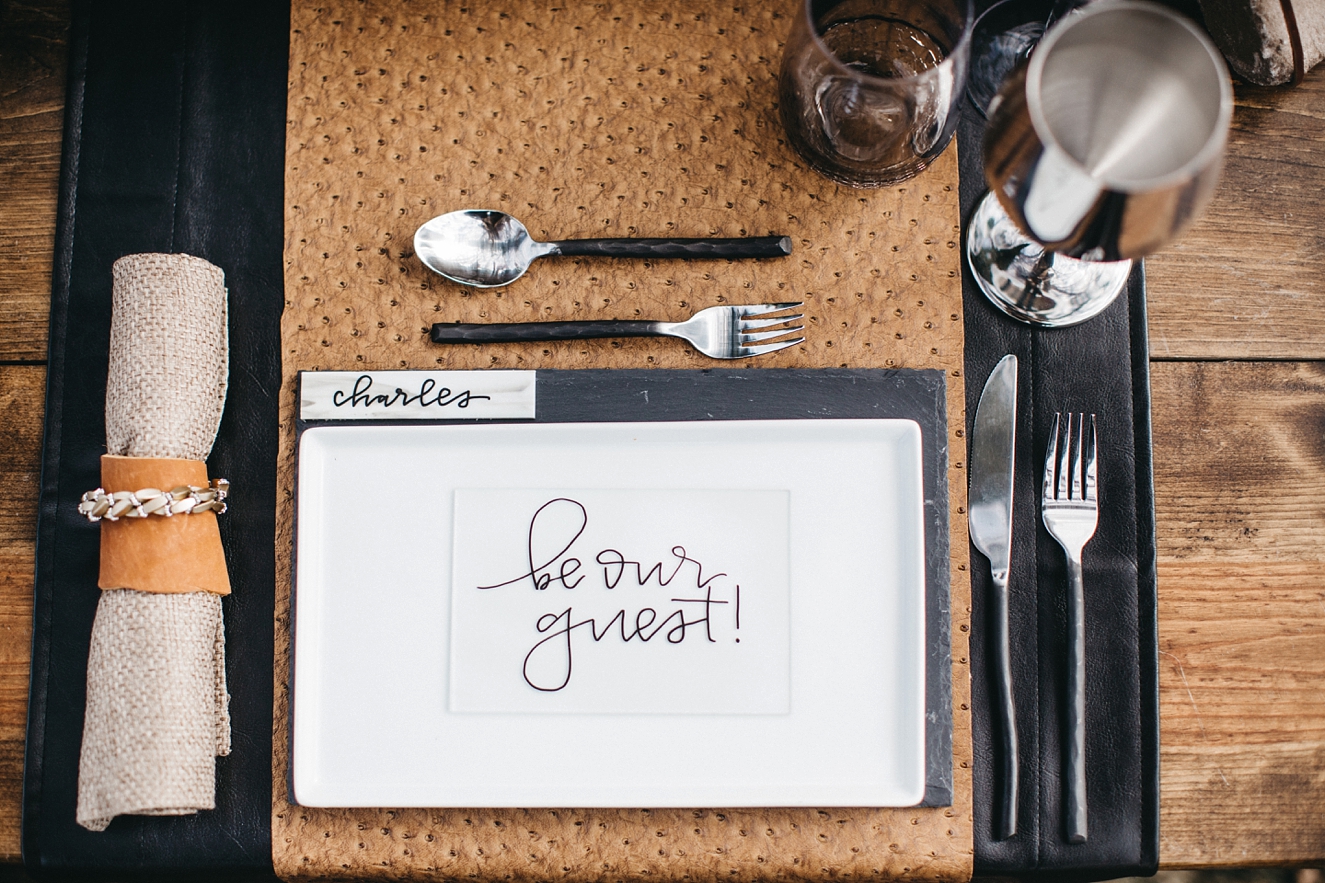 charles
be our
guest!